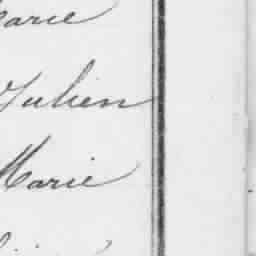 Marie
Julien
Marie